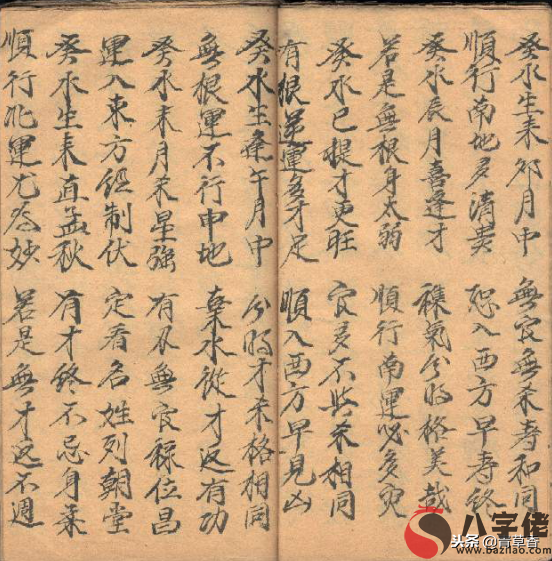 癸水生来夘月中 無官無杀寿和同
順行南地多清貴 恐入西方早寿終
癸水辰月喜逢才 雜氣分明格美哉
若是無根身太弱 順行南運必多灾
癸水巳提才更旺 官多不些杀相同
有根逆運多才足 順入西方早見凶
癸水生逢午月中 分明才杀格相同
無根運不行申地 棄水從才返有功
癸水未月杀星強 有刃無官禄位昌
運入東方經制伏 定看名姓列朝堂
癸水生来直孟秋 有才終不忌身柔
順行北運尤為妙 若是無才返不週
八字佬
www.bazilao.com
头条